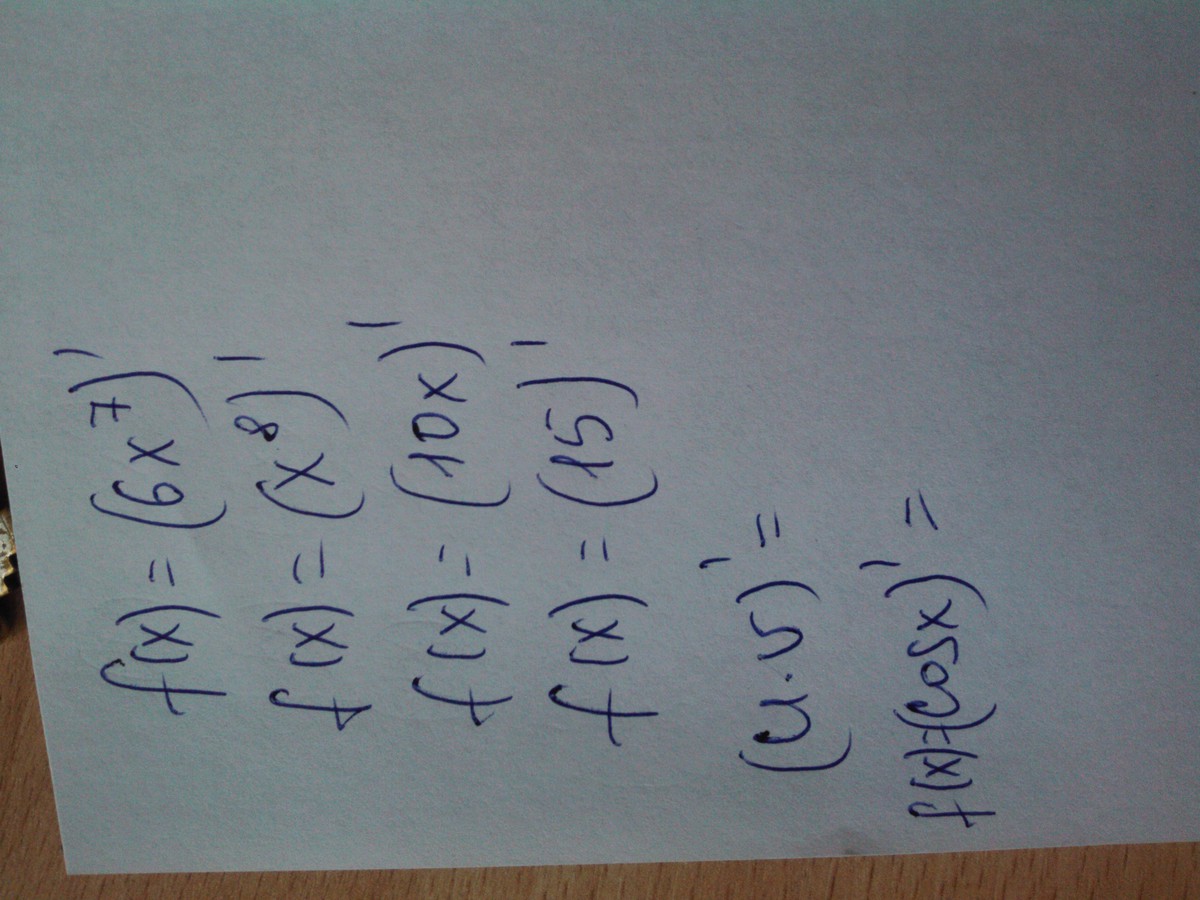 f(x) = (6x⁷)'
f(x) = (x⁸)'
f(x) = (10x)'
f(x) = (15)'
(u·v)' =
f(x)=(cosx)' =